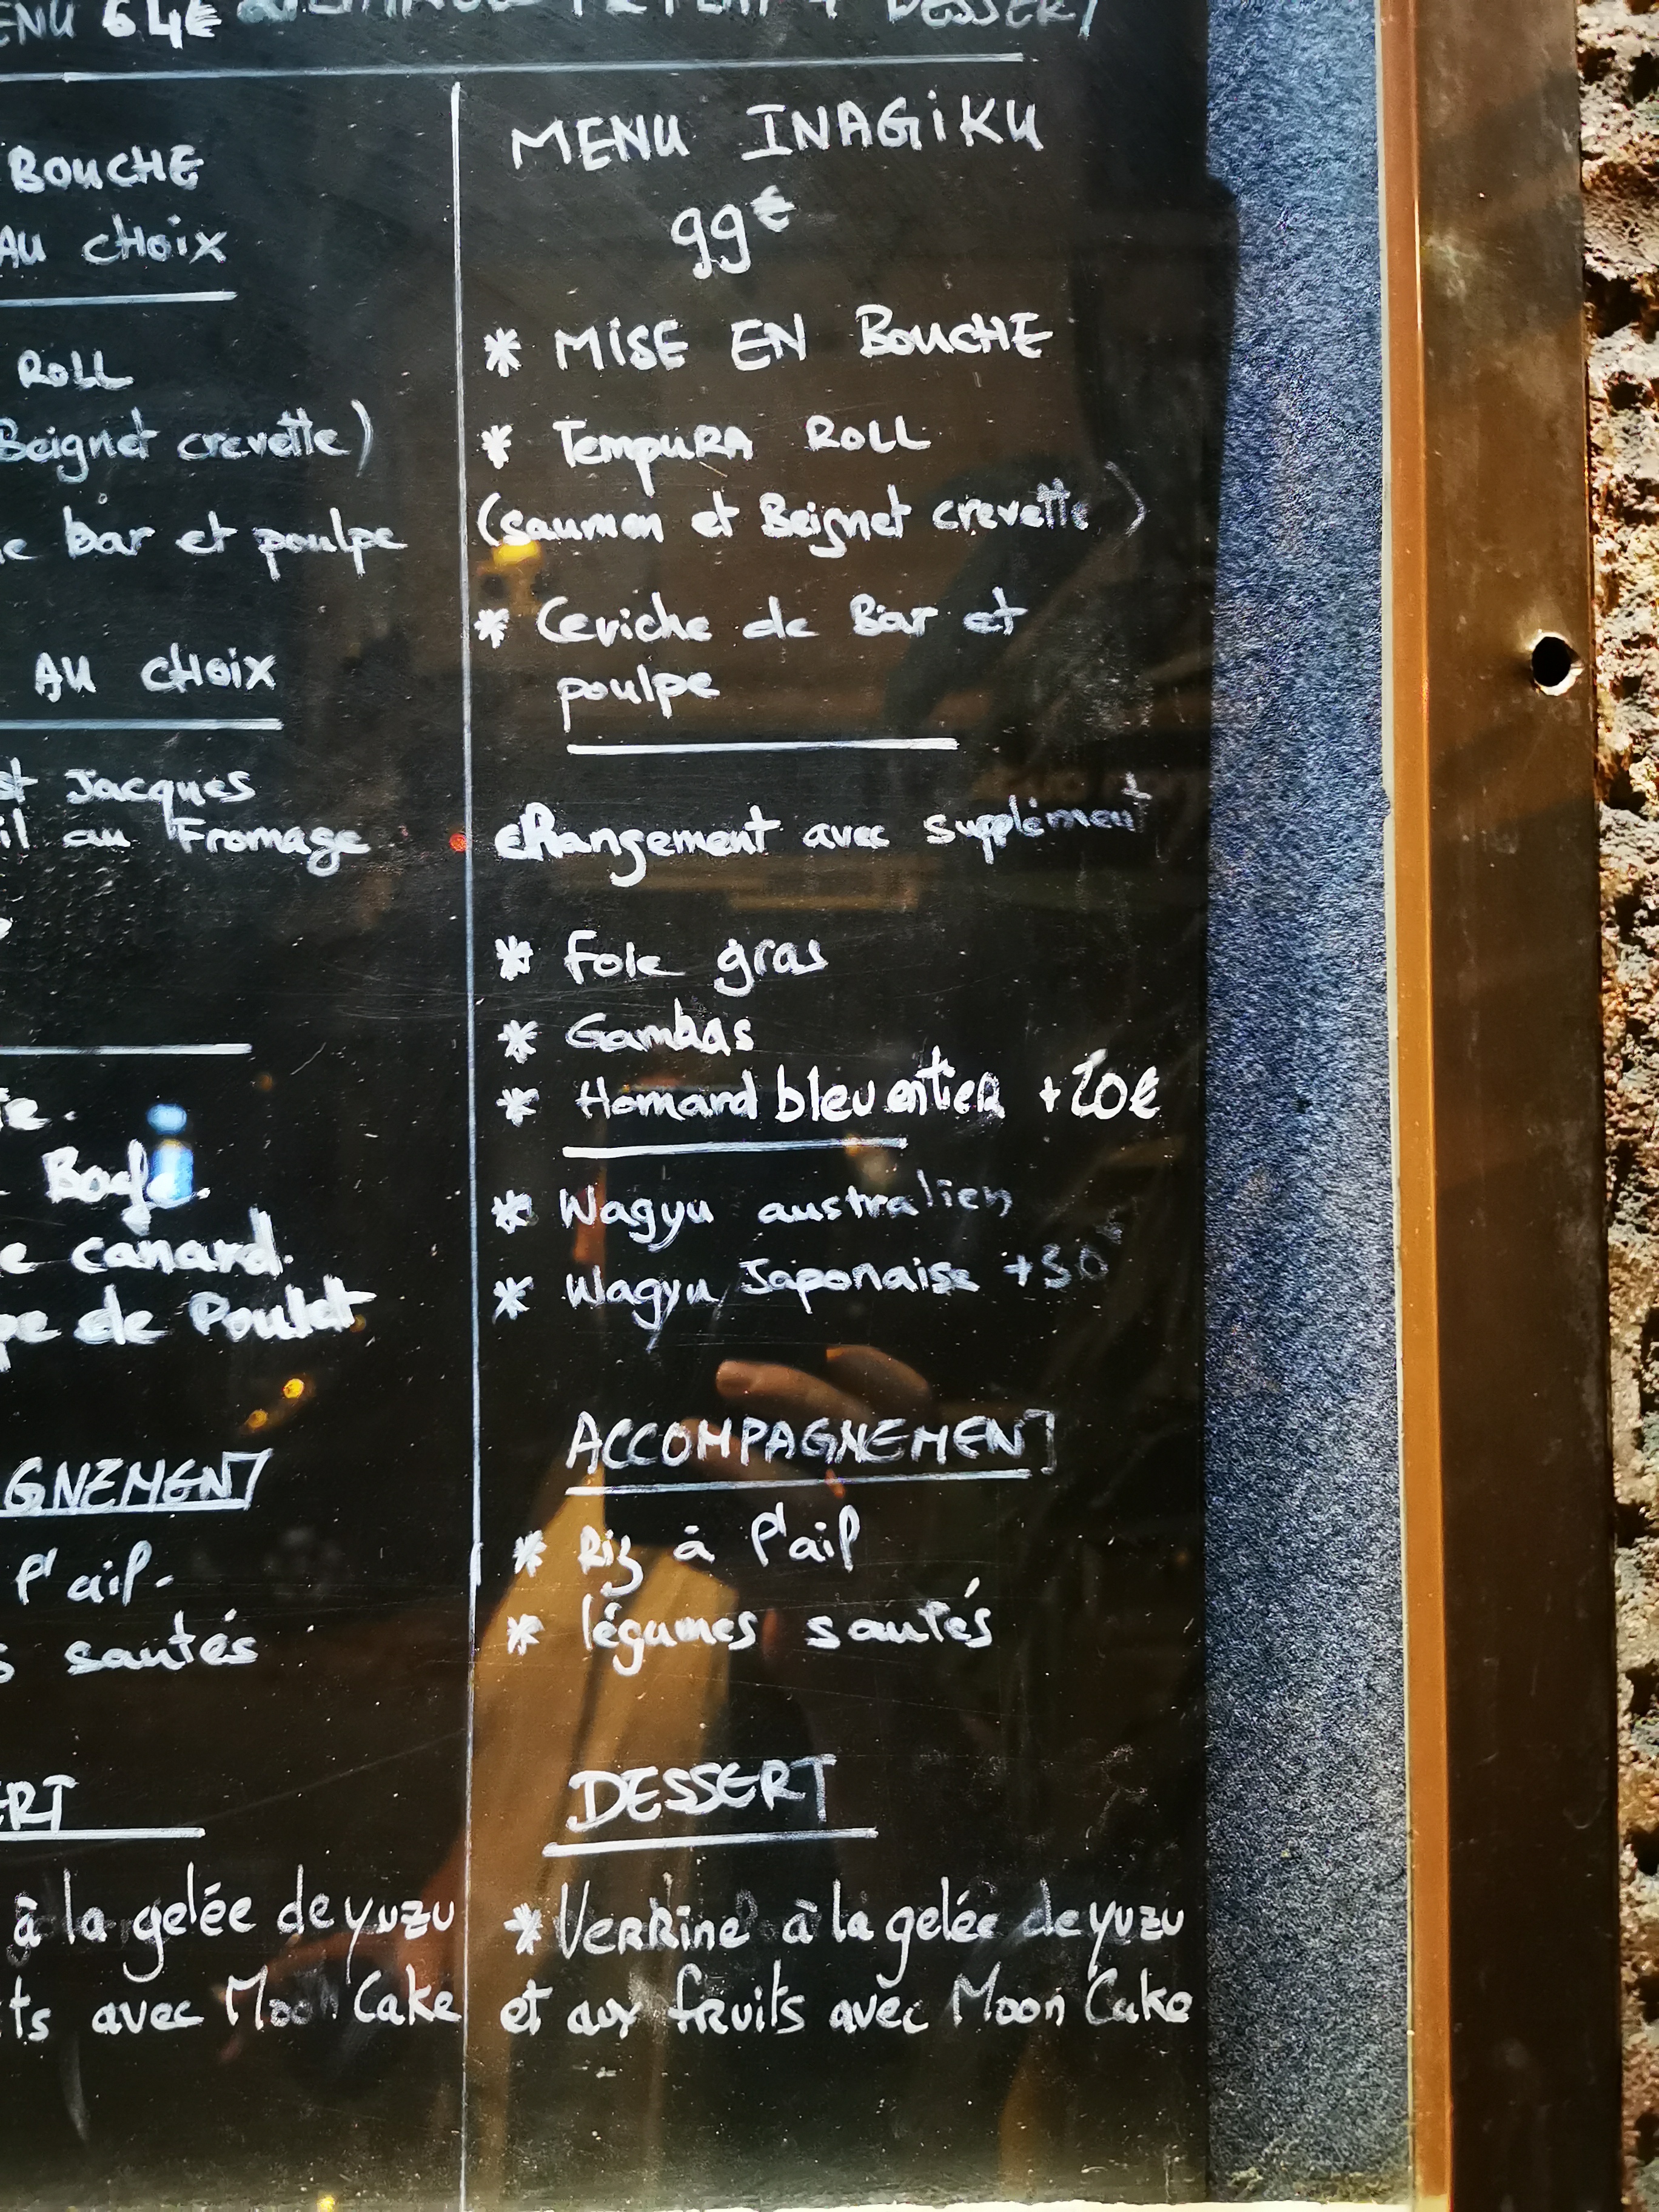 MENU 64€ PLAT + DESSERT
BOUCHE
AU CHOIX
ROLL
Beignet crevette)
bar et poulpe
AU CHOIX
St Jacques
il au Fromage
Boeuf.
e canard.
pe de Poulet
GNEMENT
l'ail.
s sautés
ERT
à la gelée de yuzu
ts avec Moon Cake
MENU INAGIKU
99€
* MISE EN BOUCHE
* TempuRA ROLL
(saumon et Beignet crevette)
* Ceviche de Bar et
poulpe
changement avec supplément
* Foie gras
* Gambas
* Homard bleu entier +20€
* Wagyu australien
* Wagyu Japonaise +30€
ACCOMPAGNEMENT
* Riz à l'ail
* légumes sautés
DESSERT
* Verrine à la gelée de yuzu
et aux fruits avec Moon Cake